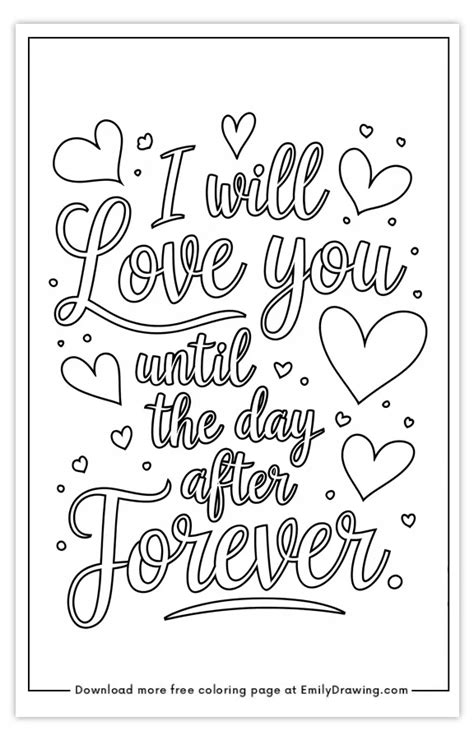 I will
Love you
until
the day
after
Forever.
Download more free coloring page at EmilyDrawing.com